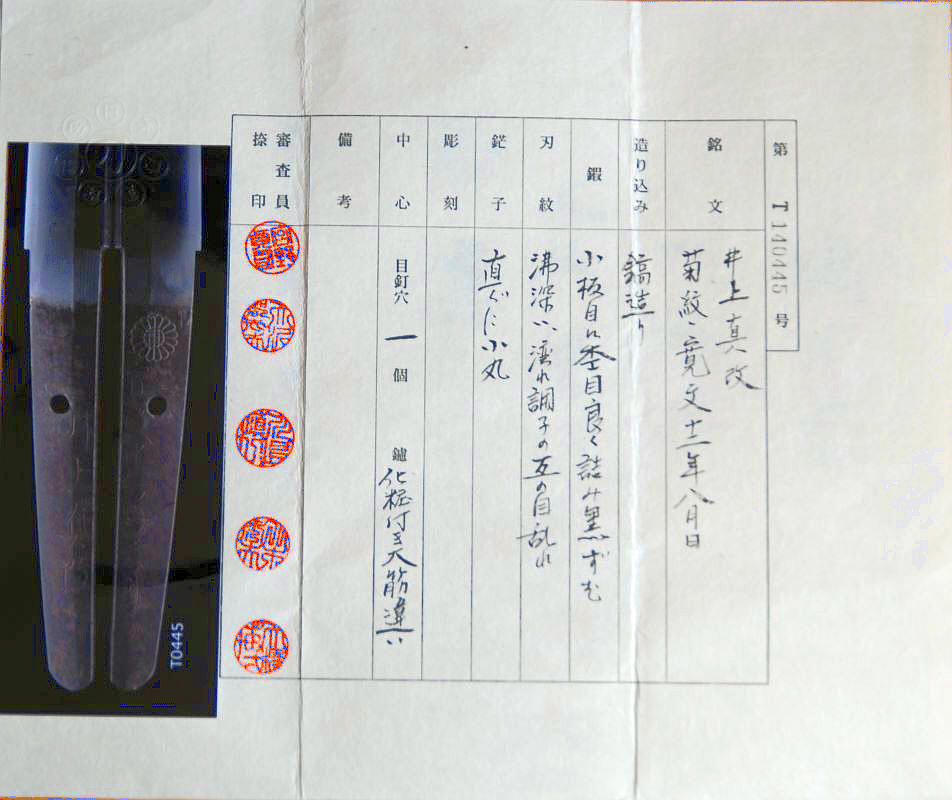 第 T 140445 号
銘文
井上真改
菊紋、寛文十二年八月日
造り込み
鎬造り
鍜
小板目に杢目良く詰み黒ずむ
刃紋
沸深い、湾れ調子の互の目乱れ
鋩子
直ぐに小丸
彫刻
中心
目釘穴 一 個 鑢 化粧付き大筋違い
備考
審査員
捺印
T0445